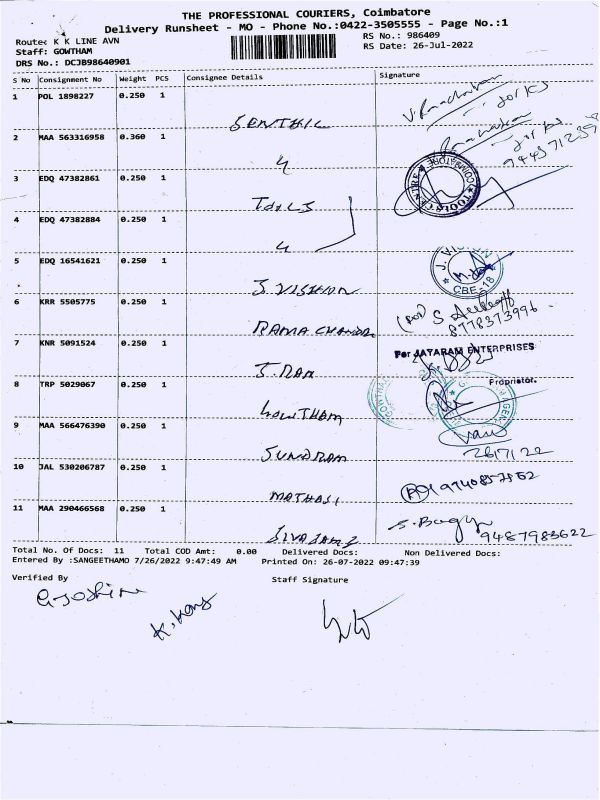 THE PROFESSIONAL COURIERS, Coimbatore
Delivery Runsheet - MO - Phone No.:0422-3505555 - Page No.:1
Route: K K LINE AVN
RS No.: 986409
Staff: GOWTHAM
RS Date: 26-Jul-2022
DRS No.: DCJB98640901
S No Consignment No Weight PCS Consignee Details Signature
1 POL 1898227 0.250 1
SENTHIL
2 MAA 563316958 0.360 1
3 EDQ 47382861 0.250 1
TOOLS
4 EDQ 47382884 0.250 1
5 EDQ 16541621 0.250 1
J. VISHION
CBE-18
6 KRR 5505775 0.250 1
RAMA CHANDR
8778373996
7 KNR 5091524 0.250 1
For JAYARAM ENTERPRISES
J. RAM
8 TRP 5029067 0.250 1
Proprietor.
GOWTHAM
9 MAA 566476390 0.250 1
SUNDRAM
26/7/22
10 JAL 530206787 0.250 1
11 MAA 290466568 0.250 1
9487983622
Total No. Of Docs: 11 Total COD Amt: 0.00 Delivered Docs: Non Delivered Docs:
Entered By :SANGEETHAMO 7/26/2022 9:47:49 AM Printed On: 26-07-2022 09:47:39
Verified By Staff Signature